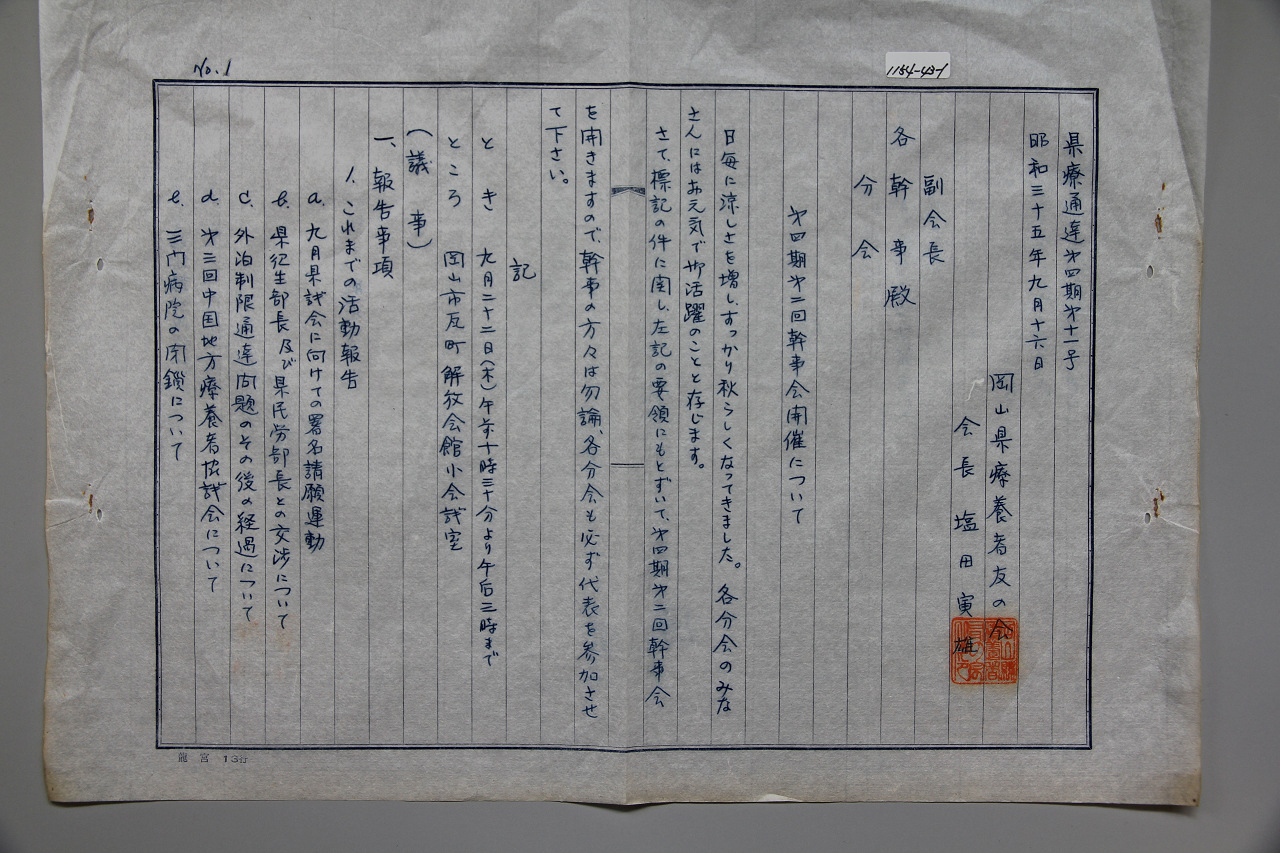 No.1
1184-43-1
県療通達第四期第十一号
昭和三十五年九月十六日
岡山県療養者友の会
会長 塩田寅雄
副会長
各幹事殿
分会
第四期第二回幹事会開催について
日毎に涼しさを増し、すっかり秋らしくなってきました。各分会のみな
さんにはお元気で御活躍のことと存じます。
さて、標記の件に関し、左記の要領にもとずいて、第四期第二回幹事会
を開きますので、幹事の方々は勿論、各分会も必ず代表を参加させ
て下さい。
記
とき 九月二十二日(木)午前十時三十分より午后三時まで
ところ 岡山市瓦町解放会館小会議室
(議事)
一、報告事項
1、これまでの活動報告
a. 九月県議会に向けての署名請願運動
b. 県衛生部長及び県民労部長との交渉について
c. 外泊制限通達問題のその後の経過について
d. 第三回中国地方療養者協議会について
e. 三門病院の閉鎖について
龍宮 13行